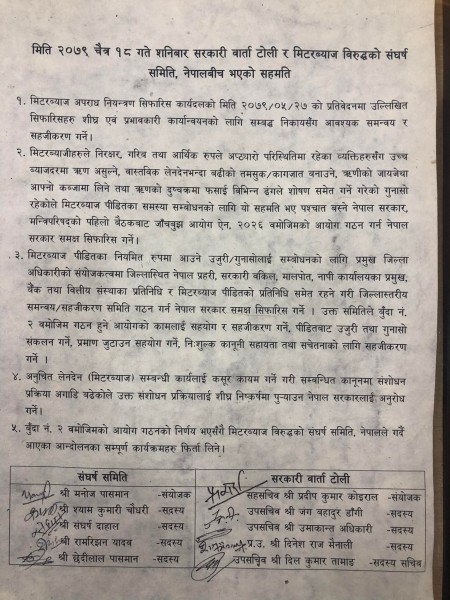 मिति २०७९ चैत्र १८ गते शनिबार सरकारी वार्ता टोली र मिटरब्याज विरुद्धको संघर्ष
समिति, नेपालबीच भएको सहमति
१. मिटरब्याज अपराध नियन्त्रण सिफारिस कार्यदलको मिति २०७९/०५/२७ को प्रतिवेदनमा उल्लिखित
सिफारिसहरु शीघ्र एवं प्रभावकारी कार्यान्वयनको लागि सम्बद्ध निकायसँग आवश्यक समन्वय र
सहजीकरण गर्ने।
२. मिटरब्याजीहरुले निरक्षर, गरिव तथा आर्थिक रुपले अप्ठ्यारो परिस्थितिमा रहेका व्यक्तिहरुसँग उच्च
ब्याजदरमा ऋण असुल्ने, वास्तविक लेनदेनभन्दा बढीको तमसुक/कागजात बनाउने, ऋणीको जायजेथा
आफ्नो कब्जामा लिने तथा ऋणको दुष्चक्रमा फसाई विभिन्न ढंगले शोषण समेत गर्ने गरेको गुनासो
रहेकोले मिटरब्याज पीडितका समस्या सम्बोधनको लागि यो सहमति भए पश्चात बस्ने नेपाल सरकार,
मन्त्रिपरिषद्को पहिलो बैठकबाट जाँचबुझ आयोग ऐन, २०२६ बमोजिमको आयोग गठन गर्न नेपाल
सरकार समक्ष सिफारिस गर्ने।
३. मिटरब्याज पीडितका नियमित रुपमा आउने उजुरी/गुनासोलाई सम्बोधनको लागि प्रमुख जिल्ला
अधिकारीको संयोजकत्वमा जिल्लास्थित नेपाल प्रहरी, सरकारी वकिल, मालपोत, नापी कार्यालयका प्रमुख,
बैंक तथा वित्तीय संस्थाका प्रतिनिधि र मिटरब्याज पीडितको प्रतिनिधि समेत रहने गरी जिल्लास्तरीय
समन्वय/सहजीकरण समिति गठन गर्न नेपाल सरकार समक्ष सिफारिस गर्ने । उक्त समितिले बुँदा नं.
२ बमोजिम गठन हुने आयोगको कामलाई सहयोग र सहजीकरण गर्ने, पीडितबाट उजुरी तथा गुनासो
संकलन गर्ने, प्रमाण जुटाउन सहयोग गर्ने, निःशुल्क कानूनी सहायता तथा सचेतनाको लागि सहजीकरण
गर्ने ।
४. अनुचित लेनदेन (मिटरब्याज) सम्बन्धी कार्यलाई कसुर कायम गर्ने गरी सम्बन्धित कानूनमा संशोधन
प्रक्रिया अगाडि बढेकोले उक्त संशोधन प्रक्रियालाई शीघ्र निष्कर्षमा पुऱ्याउन नेपाल सरकारलाई अनुरोध
गर्ने।
५. बुँदा नं. २ बमोजिमको आयोग गठनको निर्णय भएसँगै मिटरब्याज विरुद्धको संघर्ष समिति, नेपालले गर्दै
आएका आन्दोलनका सम्पूर्ण कार्यक्रमहरु फिर्ता लिने।
संघर्ष समिति
श्री मनोज पासमान -संयोजक
श्री श्याम कुमारी चौधरी -सदस्य
श्री संघर्ष दाहाल -सदस्य
श्री रामरिझन यादव -सदस्य
श्री छेदीलाल पासमान -सदस्य
सरकारी वार्ता टोली
सहसचिव श्री प्रदीप कुमार कोइराला -संयोजक
उपसचिव श्री जंग बहादुर डाँगी -सदस्य
उपसचिव श्री उमाकान्त अधिकारी -सदस्य
प्र.उ. श्री दिनेश राज मैनाली -सदस्य
उपसचिव श्री दिल कुमार तामाङ -सदस्य सचिव